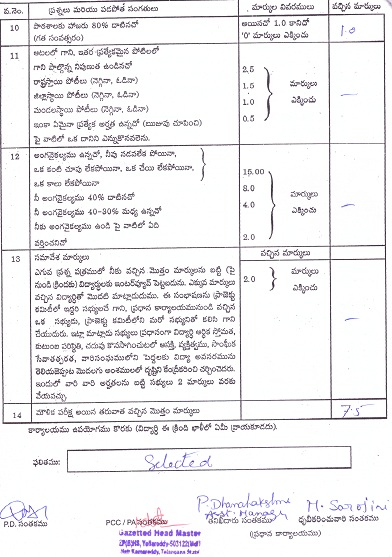 వ.నెం. ప్రశ్నలు మరియు పడపోత సంగతులు మార్కుల వివరములు వచ్చిన మార్కులు
10 పాఠశాలకు హాజరు 80% దాటినచో అయినచో 1.0 కానిచో 1.0
(గత సంవత్సరం) '0' మార్కులు ఎక్కించు
11 ఆటలలో గాని, ఇతర ప్రత్యేకమైన పోటీలలో
గాని పాల్గొన్న నిపుణత ఉండినచో 2.5
రాష్ట్రస్థాయి పోటీలు (నెగ్గినా, ఓడినా) 1.5 మార్కులు
జిల్లాస్థాయి పోటీలు (నెగ్గినా, ఓడినా) 1.0 ఎక్కించు —
మండలస్థాయి పోటీలు (నెగ్గినా, ఓడినా) 0.5
ఇంకా ఏమైనా ప్రత్యేక అర్హత ఉన్నచో (ఋజువు చూపించి)
పై వాటిలో ఒక దానిని ఎన్నుకొనవలెను.
12 అంగవైకల్యము ఉన్నచో, నీవు నడవలేక పోయినా,
ఒక కంటి చూపు లేకపోయినా, ఒక చేయి లేకపోయినా, 15.00
ఒక కాలు లేకపోయినా 8.0 మార్కులు
నీ అంగవైకల్యము 40% దాటినచో 4.0 ఎక్కించు —
నీ అంగవైకల్యము 40-30% మధ్య ఉన్నచో
నీకు అంగవైకల్యము ఉండి పై వాటిలో ఏది 2.0
వర్తించనిచో
13 సమావేశ మార్కులు వచ్చిన మార్కులు
ఎగువ ప్రశ్న పత్రములో నీకు వచ్చిన మొత్తం మార్కులను బట్టి (పై 2.0 మార్కులు
నుండి క్రిందకు) విద్యార్థులకు ఇంటర్వ్యూవ్ పెట్టబడును. ఎక్కువ మార్కులు ఎక్కించు
వచ్చిన విద్యార్థితో మొదటి మాట్లాడుదుము. ఈ సంభాషణను ప్రాజెక్టు
కమిటీలో ఇద్దరి సభ్యులచే గాని, ప్రధాన కార్యాలయమునుండి వచ్చిన
ఒక సభ్యుడు, ప్రాజెక్టు కమిటీలోని మరో సభ్యునితో కలిసి గాని —
చేయుదురు. ఇట్లా మాట్లాడు సభ్యులు ప్రధానంగా విద్యార్థి ఆర్థిక స్తోమత,
కుటుంబ పరిస్థితి, చదువు కొనసాగించుటలో ఆసక్తి, వ్యక్తిత్వము, సాంఘీక
ఇందులో వారి వారి అర్హతలను బట్టి సభ్యులు 2 మార్కుల వరకు
వేయవచ్చు.
14 మౌలిక పరీక్ష అయిన తరువాత వచ్చిన మొత్తం మార్కులు 7.5
కార్యాలయము ఉపయోగము కొరకు (విద్యార్థి ఈ క్రింది ఖాళీలో ఏమీ వ్రాయకూడదు).
ఫలితము: Selected
P. Dhanalakshmi M. Sarojini
Asst. Manager
P.D. సంతకము PCC / PA సంతకము తనిఖీదారు సంతకము ధృవీకరించువారి సంతకము
Gazetted Head Master (ప్రధాన కార్యాలయము)
ZP(B)HS, Yellareddy-503122(Mdl)